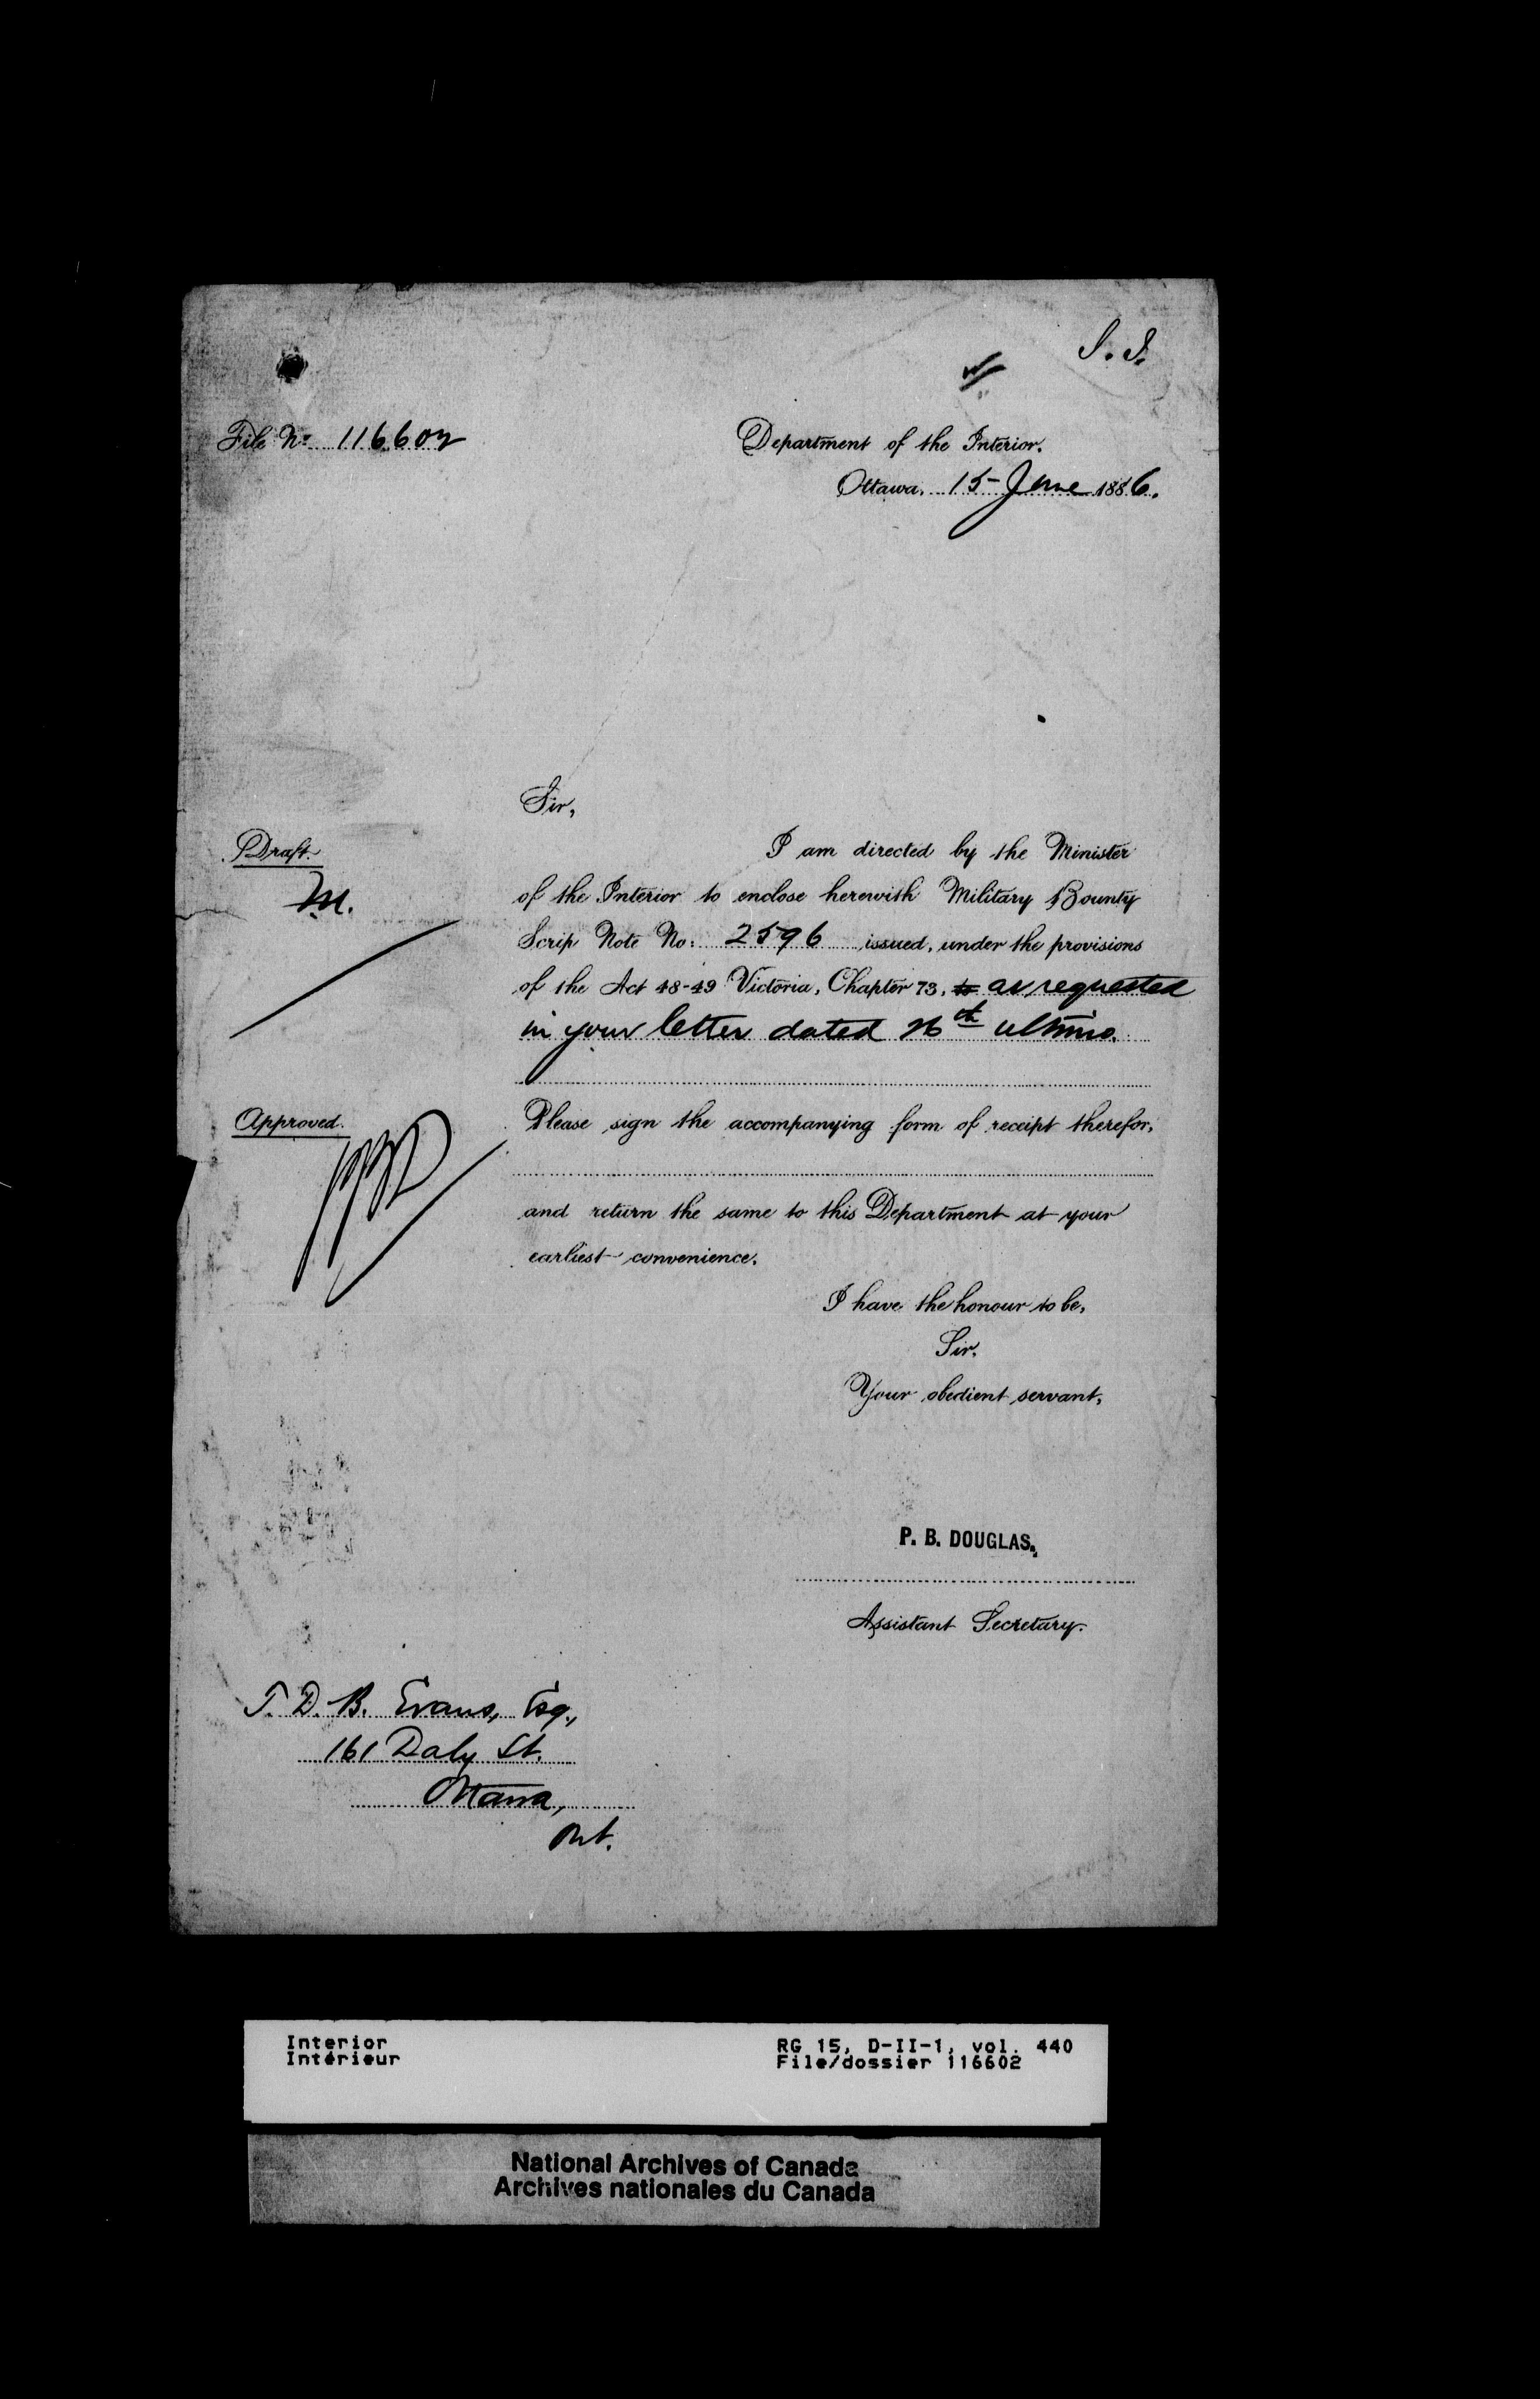 S. S.
File No. 116602
Department of the Interior.
Ottawa, 15 June 1886.
Sir,
Draft.
M.
I am directed by the Minister
of the Interior to enclose herewith Military Bounty
Scrip Note No: 2596 issued, under the provisions
of the Act 48-49 Victoria, Chapter 73, to as requested
in your letter dated 26th ultimo.
Approved.
Please sign the accompanying form of receipt therefor,
and return the same to this Department at your
earliest convenience.
I have the honour to be,
Sir,
Your obedient servant,
P. B. DOUGLAS.
Assistant Secretary.
T. D. B. Evans, Esq.,
161 Daly St.
Ottawa,
Ont.
Interior
Intérieur
RG 15, D-II-1, vol. 440
File/dossier 116602
National Archives of Canada
Archives nationales du Canada